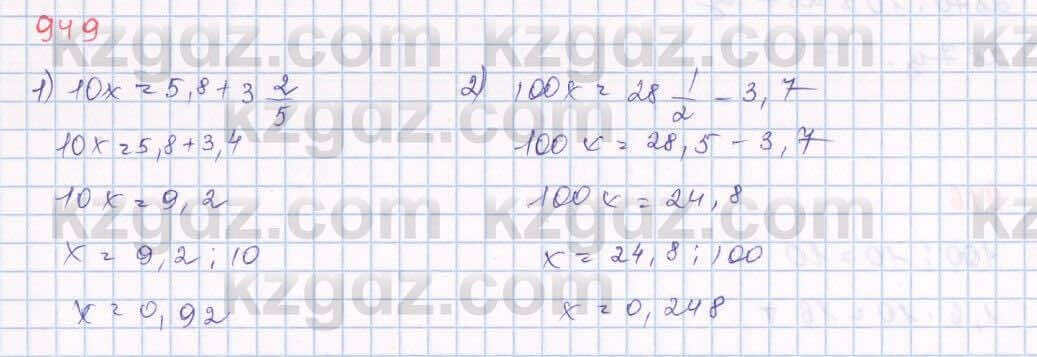 949
1) 10x = 5,8 + 3 2/5
10x = 5,8 + 3,4
10x = 9,2
x = 9,2 : 10
x = 0,92
2) 100x = 28 1/2 - 3,7
100x = 28,5 - 3,7
100x = 24,8
x = 24,8 : 100
x = 0,248
kzgdz.com kzgdz.com
kzgdz.com kzgdz.com
kzgdz.com kzgdz.com
kzgdz.com